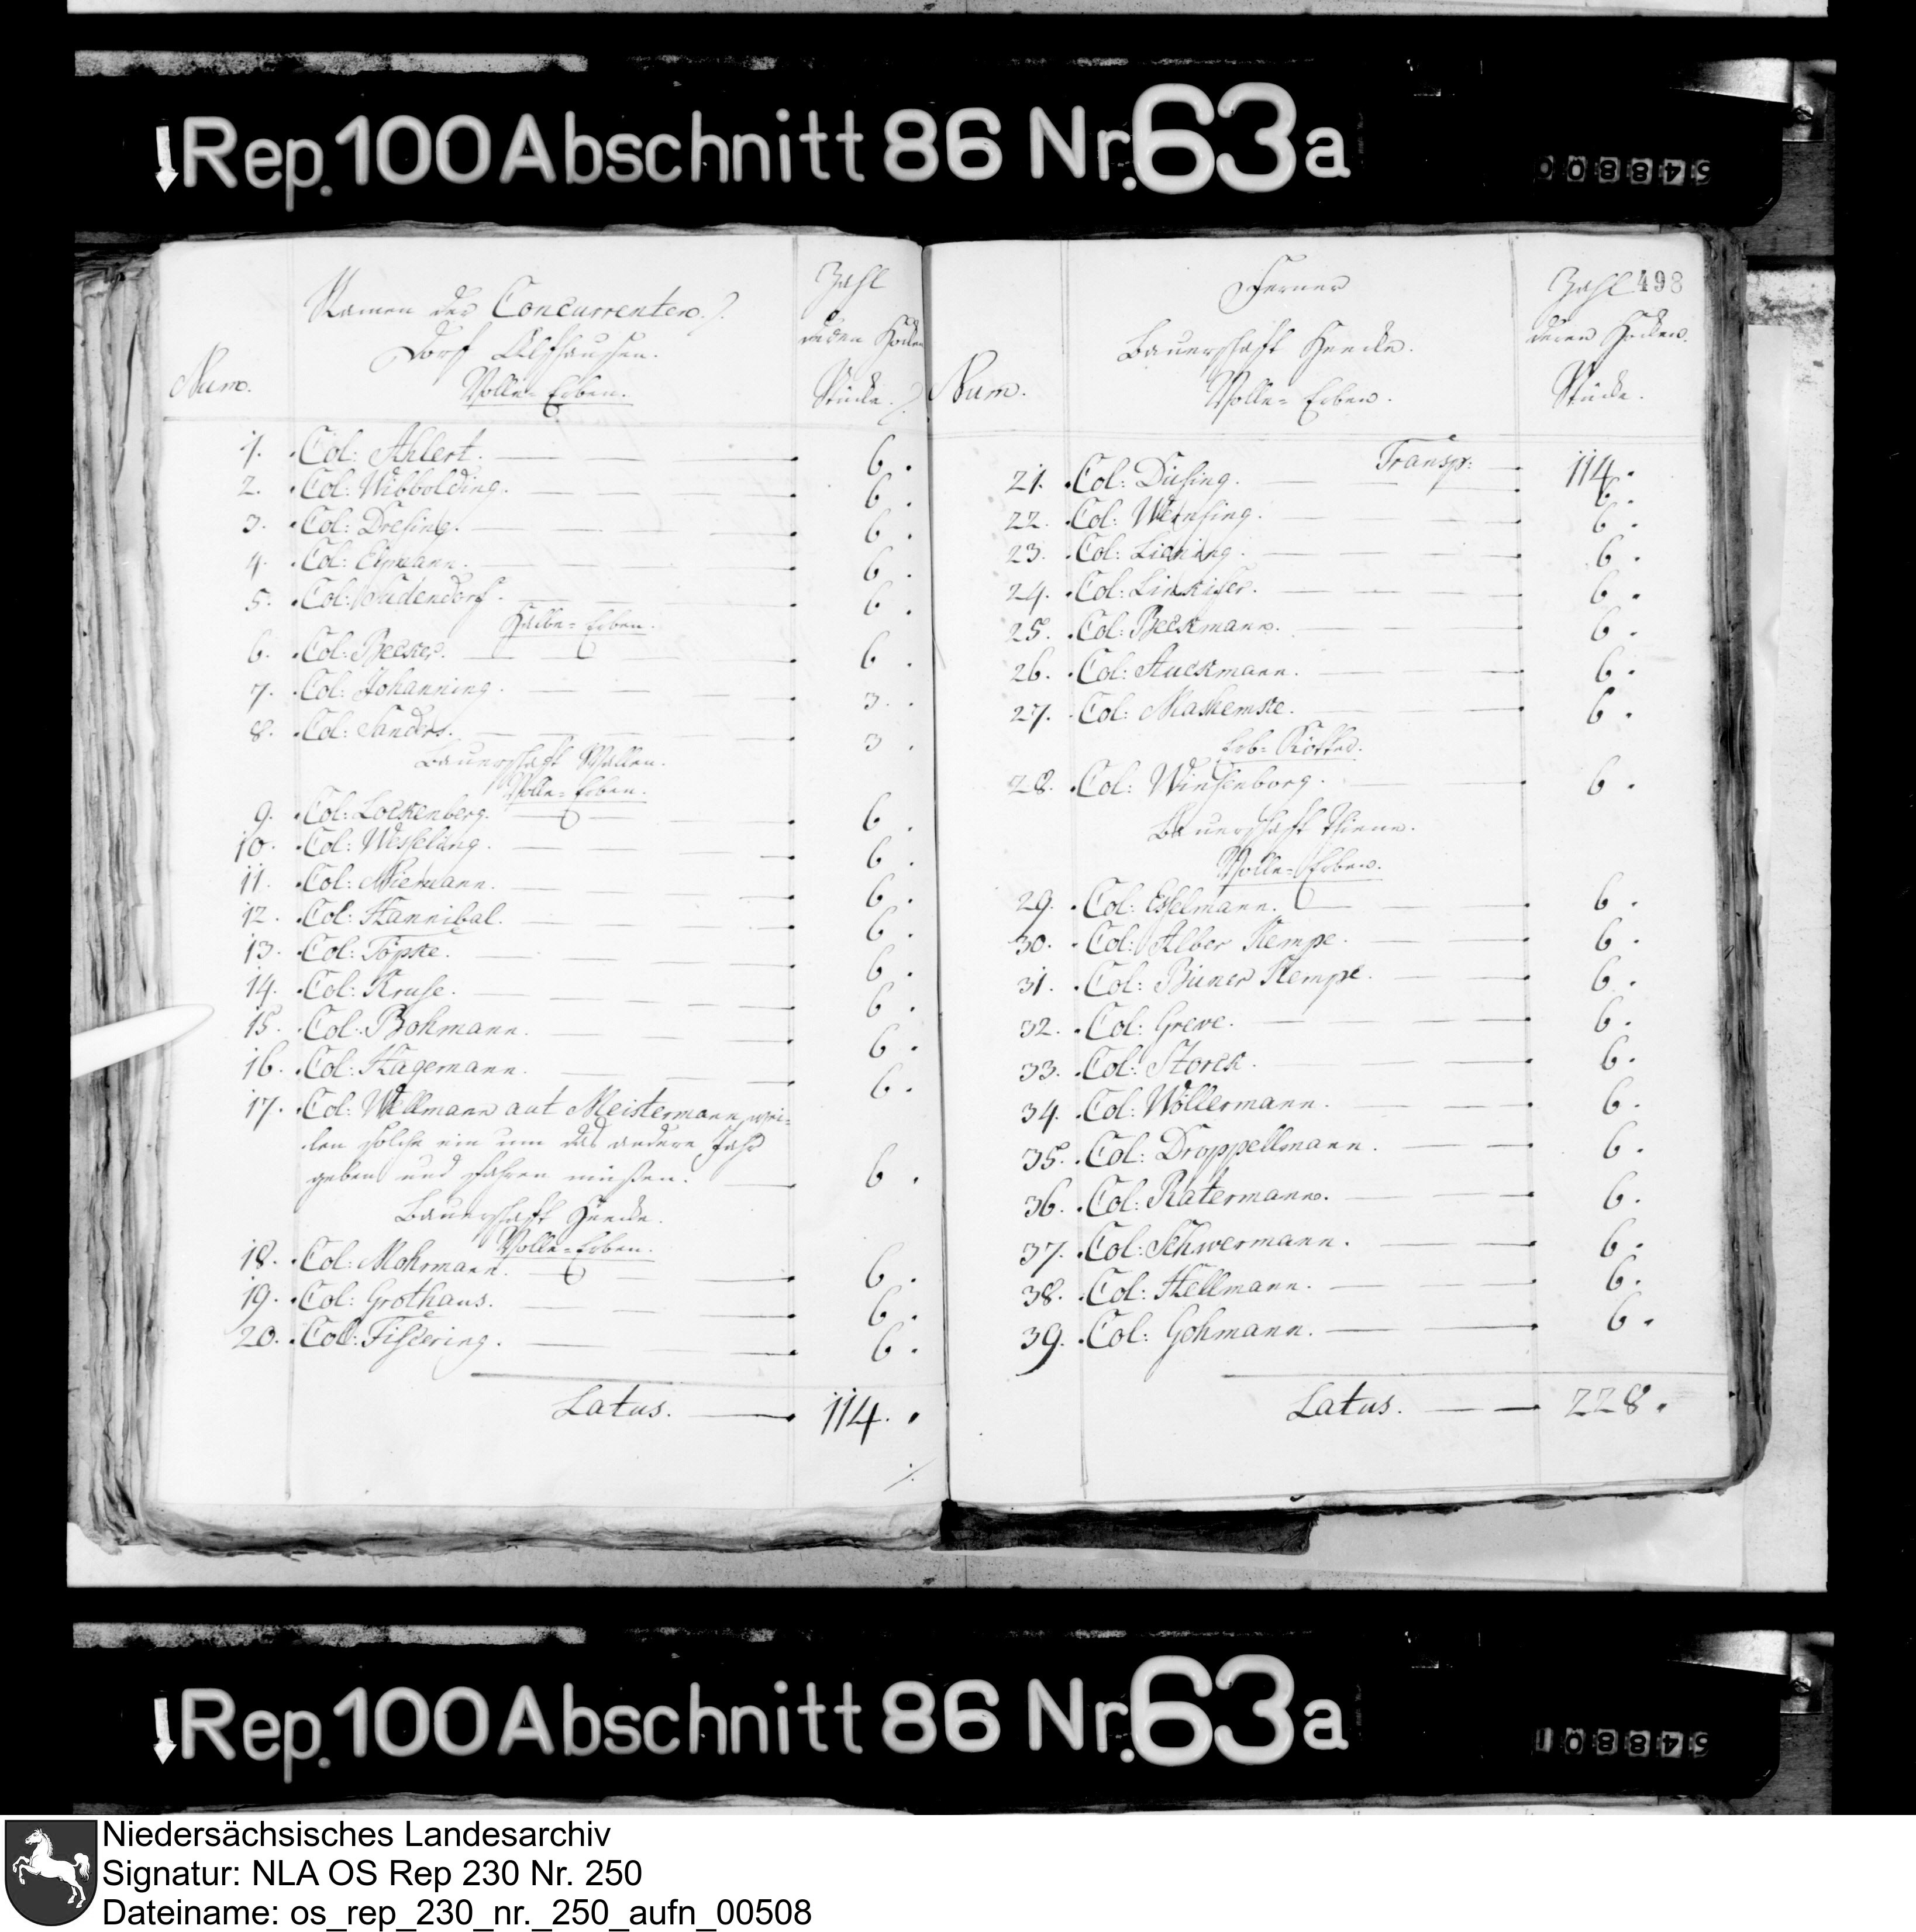 Rep. 100 Abschnitt 86 Nr. 63a
548800
Namen der Concurrenten.
Dorf Alfhausen.
Volle-Erben.
Num.
Zahl
deren Hocken
Stücke.
1. Col: Ahlert. 6.
2. Col: Wibbolding. 6.
3. Col: Dresing. 6.
4. Col: 6.
5. Col: Sudendorf. 6.
Halbe-Erben.
6. Col: Becker. 6.
7. Col: Johanning. 3.
8. Col: Sanders. 3.
Bauerschaft Wallen.
Volle-Erben.
9. Col: Lockenberg. 6.
10. Col: Wesseling. 6.
11. Col: Niemann. 6.
12. Col: Hannibal. 6.
13. Col: Töpke. 6.
14. Col: Kruse. 6.
15. Col: Bohmann. 6.
16. Col: Hagemann. 6.
17. Col: Wellmann aut Meistermann, wei-
len solche ein um das andere Jahr
geben und fahren müßen. 6.
Bauerschaft Heecke.
Volle-Erben.
18. Col: Mohrmann. 6.
19. Col: Grothaus. 6.
20. Col: Fiskering. 6.
Latus. 114.
Ferner
Bauerschaft Heecke.
Volle-Erben.
Num.
Zahl 498
deren Hocken.
Stücke.
Transp: 114.
21. Col: Düsing. 6.
22. Col: Wensing. 6.
23. Col: Liening. 6.
24. Col: 6.
25. Col: Beckmann. 6.
26. Col: Stuckmann. 6.
27. Col: 6.
Erb-Kötter.
28. Col: Winsenborg. 6.
Bauerschaft Thiene.
Volle-Erben.
29. Col: Esselmann. 6.
30. Col: Alber Kempe. 6.
31. Col: Büner Kempe. 6.
32. Col: Greve. 6.
33. Col: Storck. 6.
34. Col: Wöllermann. 6.
35. Col: Droppellmann. 6.
36. Col: Ratermann. 6.
37. Col: Schwermann. 6.
38. Col: Hellmann. 6.
39. Col: Gohmann. 6.
Latus. 228.
Rep. 100 Abschnitt 86 Nr. 63a
548801
Niedersächsisches Landesarchiv
Signatur: NLA OS Rep 230 Nr. 250
Dateiname: os_rep_230_nr._250_aufn_00508